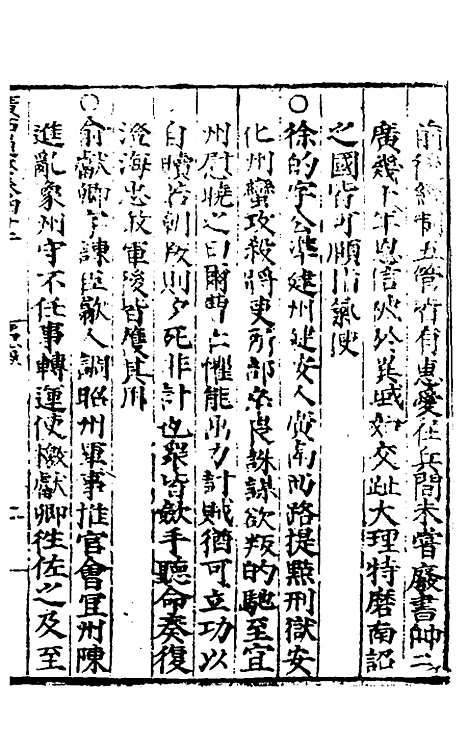 前後經制五管皆有惠愛在兵間未嘗廢書帥二
廣幾十年恩信狹於異域如交趾大理特磨南詔
之國皆可順指氣使
○徐的字公準建州建安人廣南西路提點刑獄安
化州蠻攻殺將吏所部卒畏誅謀欲叛的馳至宜
州慰曉之曰爾曹亡懼能出力討賊猶可立功以
自贖若朝叛則夕死非計也衆皆斂手聽命奏復
澄海忠敢軍後皆獲其用
○俞獻卿字諫臣歙人調昭州軍事推官會宜州陳
進亂象州守不任事轉運使檄獻卿徃佐之及至